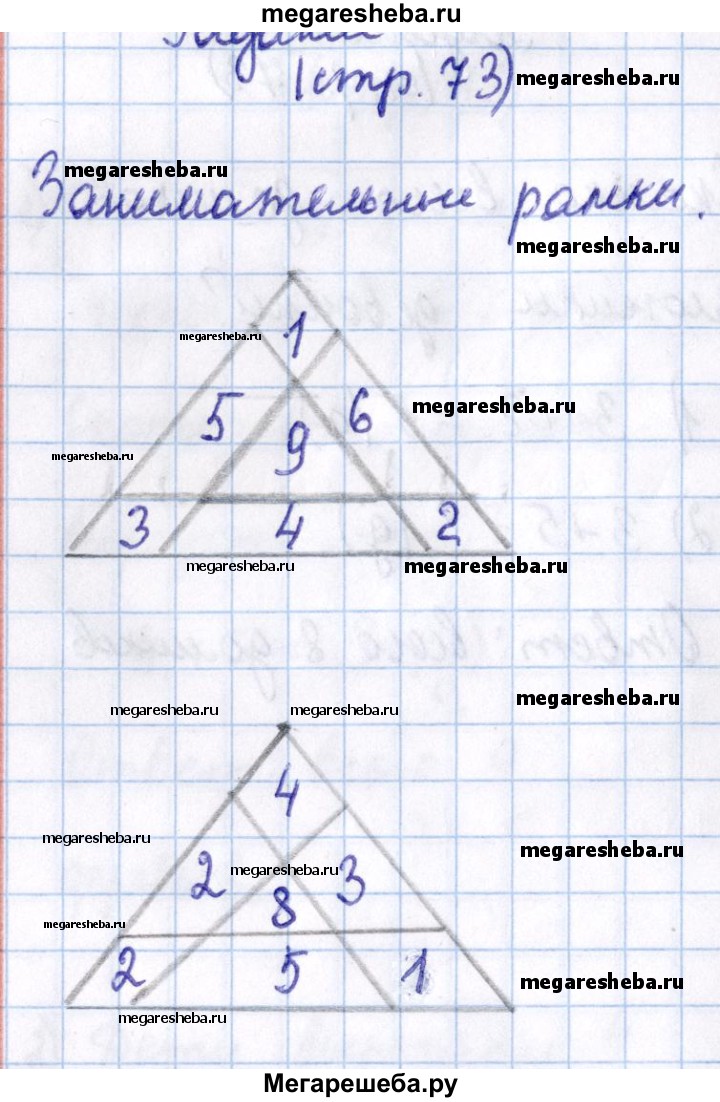 megaresheba.ru
(стр. 73)
megaresheba.ru
megaresheba.ru
Занимательные рамки.
megaresheba.ru
megaresheba.ru
1
5
6
megaresheba.ru
9
megaresheba.ru
3 4 2
megaresheba.ru
megaresheba.ru
megaresheba.ru
megaresheba.ru
megaresheba.ru
4
megaresheba.ru
megaresheba.ru
2 3
megaresheba.ru
8
megaresheba.ru
2 5 1
megaresheba.ru
megaresheba.ru
Мегарешеба.ру